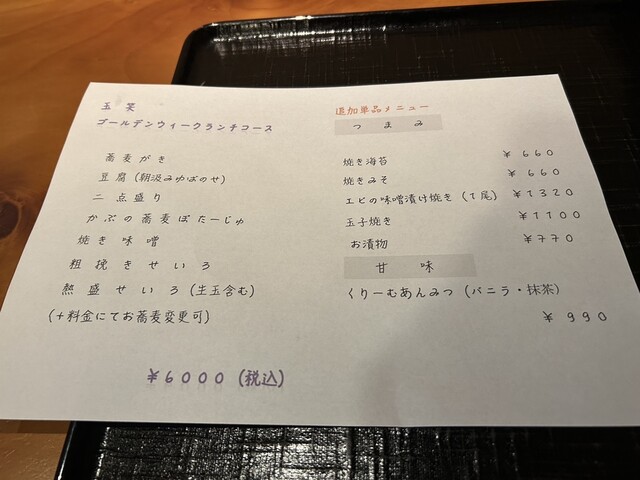 玉笑
ゴールデンウィークランチコース
蕎麦がき
豆腐(朝汲みゆばのせ)
二点盛り
かぶの蕎麦ぽたーじゅ
焼き味噌
粗挽きせいろ
熱盛せいろ(生玉含む)
(+料金にてお蕎麦変更可)
¥6000(税込)
追加単品メニュー
つまみ
焼き海苔 ¥660
焼きみそ ¥660
エビの味噌漬け焼き(1尾) ¥1320
玉子焼き ¥1100
お漬物 ¥770
甘味
くりーむあんみつ(バニラ・抹茶)
¥990